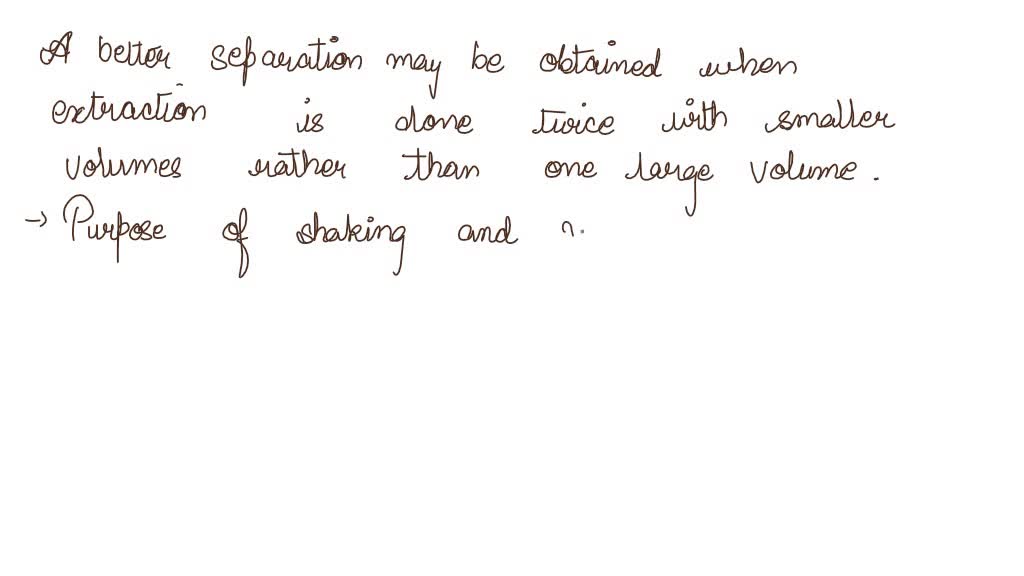 A better separation may be obtained when
extraction is done twice with smaller
volumes rather than one large volume.
→ Purpose of shaking and